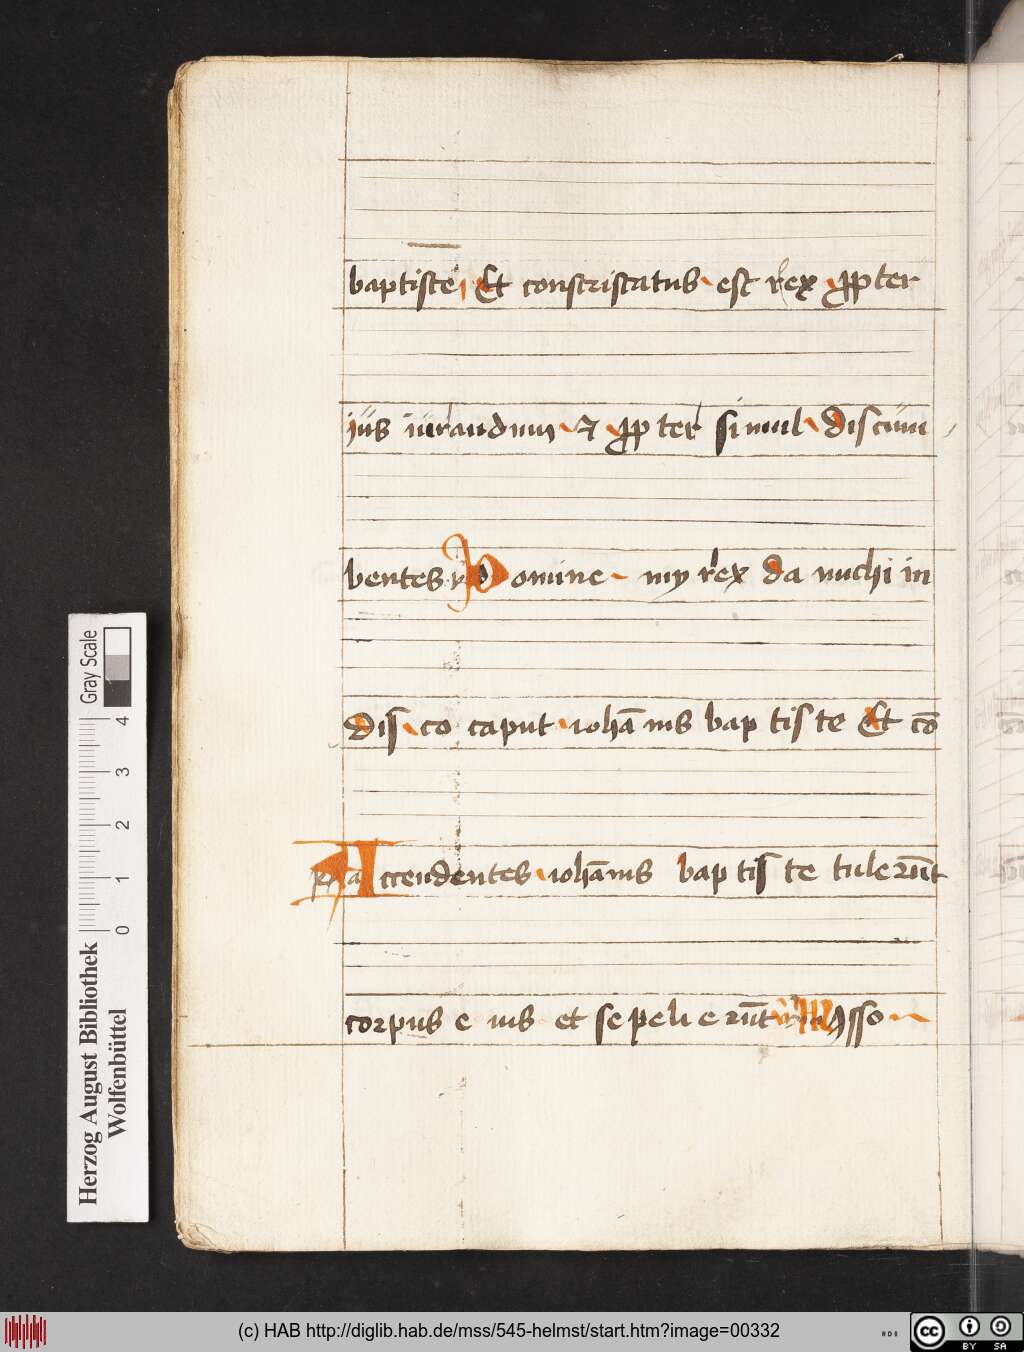 baptiste Et constristatus est rex ꝓpter
ius iurandum ⁊ ꝓpter simul discum
bentes Domine my rex da michi in
dis co caput iohānis bap tis te Et cō
Accendentes iohānis bap tis te tulerūt
corpus e ius et se peli e rūt ꝯsso
Gray Scale
0 1 2 3 4
Herzog August Bibliothek
Wolfenbüttel
(c) HAB http://diglib.hab.de/mss/545-helmst/start.htm?image=00332
cc BY SA